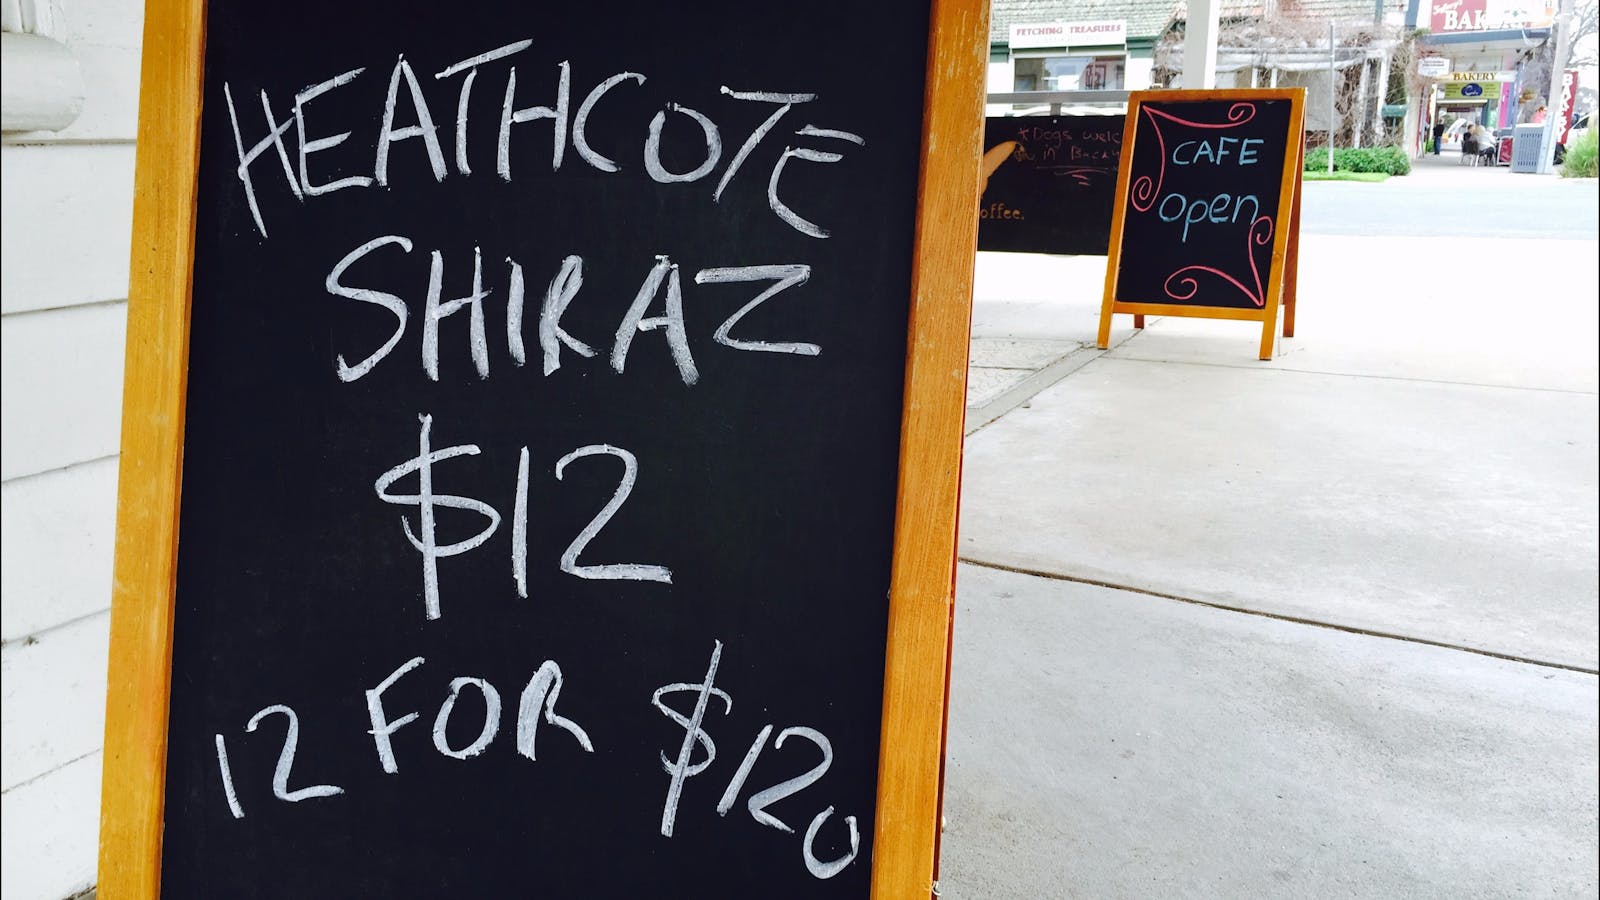 HEATHCOTE
SHIRAZ
$12
12 FOR $120
CAFE
open
*Dogs welc
in Backy
offee.
FETCHING TREASURES
BAK
BAKERY